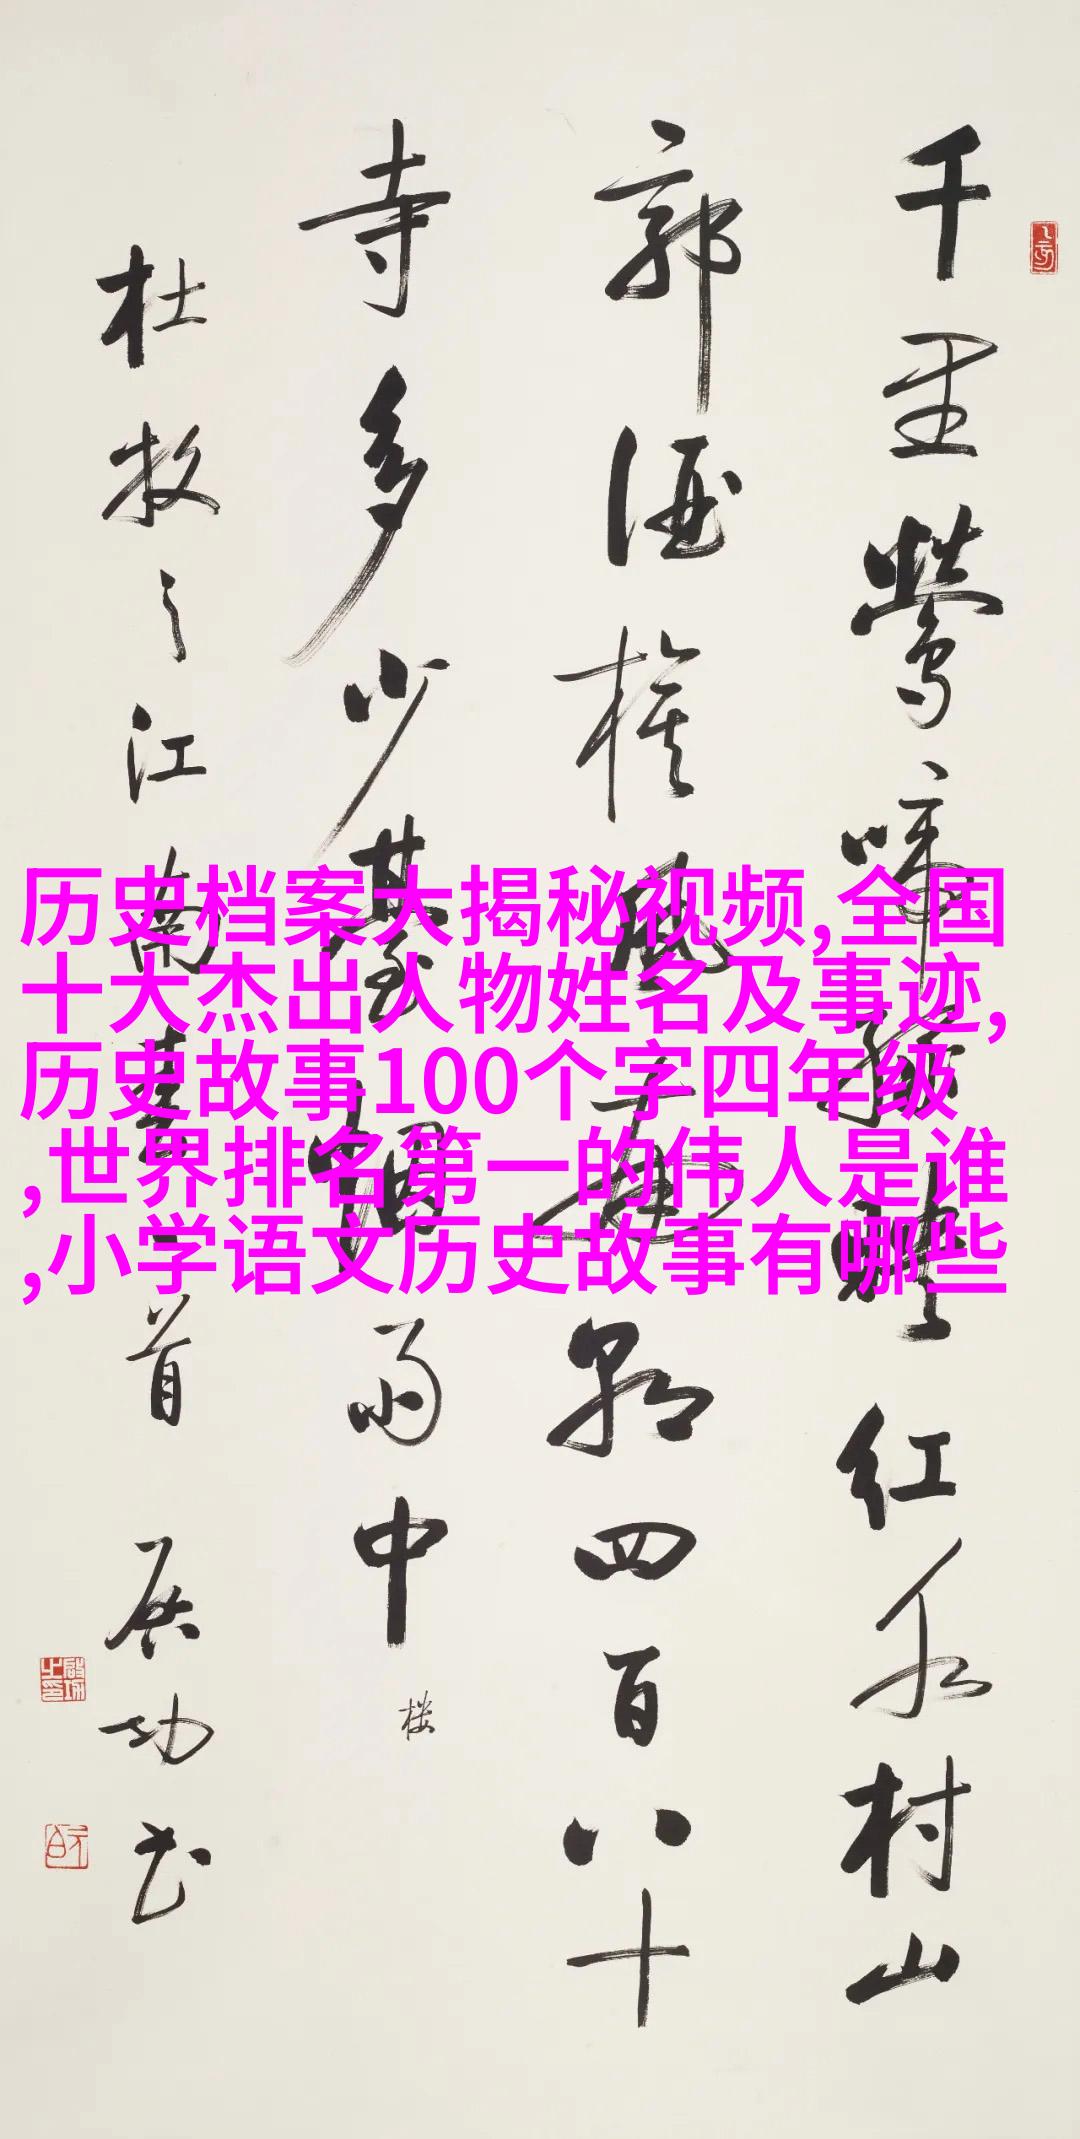 千里鶯啼綠映紅水村山
郭酒旗風南朝四百八十
寺多少臺烟雨中
楼
杜牧之江南春一首
启功书
历史档案大揭秘视频,全国
十大杰出人物姓名及事迹,
历史故事100个字四年级
,世界排名第一的伟人是谁
,小学语文历史故事有哪些